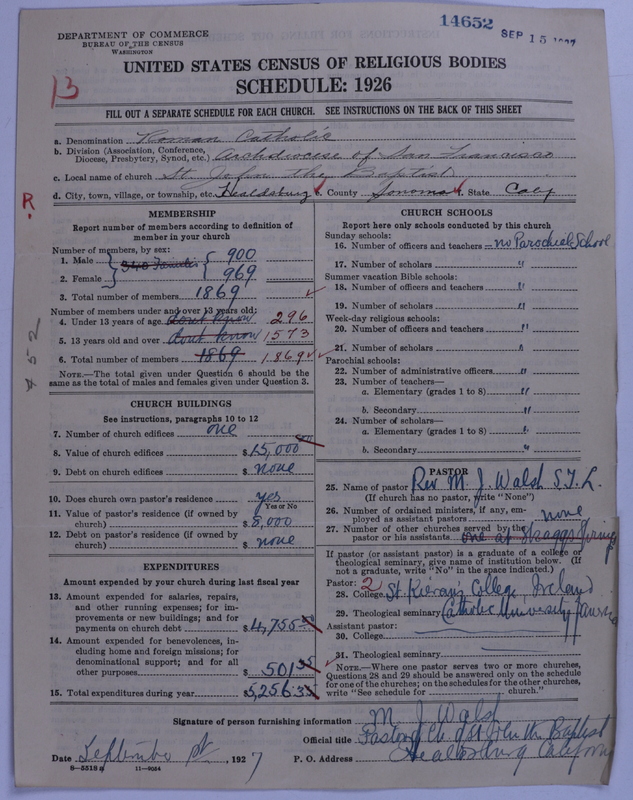 14652 SEP 15 1927
DEPARTMENT OF COMMERCE
BUREAU OF THE CENSUS
WASHINGTON
UNITED STATES CENSUS OF RELIGIOUS BODIES
SCHEDULE: 1926
13
FILL OUT A SEPARATE SCHEDULE FOR EACH CHURCH. SEE INSTRUCTIONS ON THE BACK OF THIS SHEET
a. Denomination Roman Catholic
b. Division (Association, Conference, Diocese, Presbytery, Synod, etc.) Archdiocese of San Francisco
c. Local name of church St. John the Baptist
R.
d. City, town, village, or township, etc. Healdsburg e. County Sonoma f. State Caly
MEMBERSHIP
Report number of members according to definition of
member in your church
Number of members, by sex:
1. Male 340 Families 900
2. Female 969
3. Total number of members 1869
Number of members under and over 13 years old:
4. Under 13 years of age dont know 296
5. 13 years old and over dont know 1573
6. Total number of members 1869 1869
NOTE.—The total given under Question 6 should be
same as the total of males and females given under Question 3.
452
CHURCH BUILDINGS
See instructions, paragraphs 10 to 12
7. Number of church edifices one
8. Value of church edifices $15,000
9. Debt on church edifices $ none
10. Does church own pastor's residence yes
Yes or No
11. Value of pastor's residence (if owned by
church) $8,000
12. Debt on pastor's residence (if owned by
church) $ none
EXPENDITURES
Amount expended by your church during last fiscal year
13. Amount expended for salaries, repairs,
and other running expenses; for im-
provements or new buildings; and for
payments on church debt $4,755
14. Amount expended for benevolences, in-
cluding home and foreign missions; for
denominational support; and for all
other purposes $501.35
15. Total expenditures during year $5,256.35
CHURCH SCHOOLS
Report here only schools conducted by this church
Sunday schools:
16. Number of officers and teachers no Parochial School
17. Number of scholars "
Summer vacation Bible schools:
18. Number of officers and teachers "
19. Number of scholars "
Week-day religious schools:
20. Number of officers and teachers "
21. Number of scholars "
Parochial schools:
22. Number of administrative officers "
23. Number of teachers—
a. Elementary (grades 1 to 8) "
b. Secondary "
24. Number of scholars—
a. Elementary (grades 1 to 8) "
b. Secondary "
PASTOR
25. Name of pastor Rev M. J. Walsh S.T.L.
(If church has no pastor, write "None")
26. Number of ordained ministers, if any, em-
ployed as assistant pastors none
27. Number of other churches served by the
pastor or his assistants one at Skaggs Springs
If pastor (or assistant pastor) is a graduate of a college or
theological seminary, give name of institution below. (If
not a graduate, write "No" in the space indicated.)
Pastor: 2
28. College St Kieran's College, Ireland
29. Theological seminary Catholic University
Assistant pastor:
30. College
31. Theological seminary
NOTE.—Where one pastor serves two or more churches,
Questions 28 and 29 should be answered only on the schedule
for one of the churches; on the schedules for the other churches,
write "See schedule for church."
Signature of person furnishing information M J Walsh
Official title Pastor of Ch. of St John the Baptist
Date September 1st, 1927 P. O. Address Healdsburg California
8—5518a 11—9064